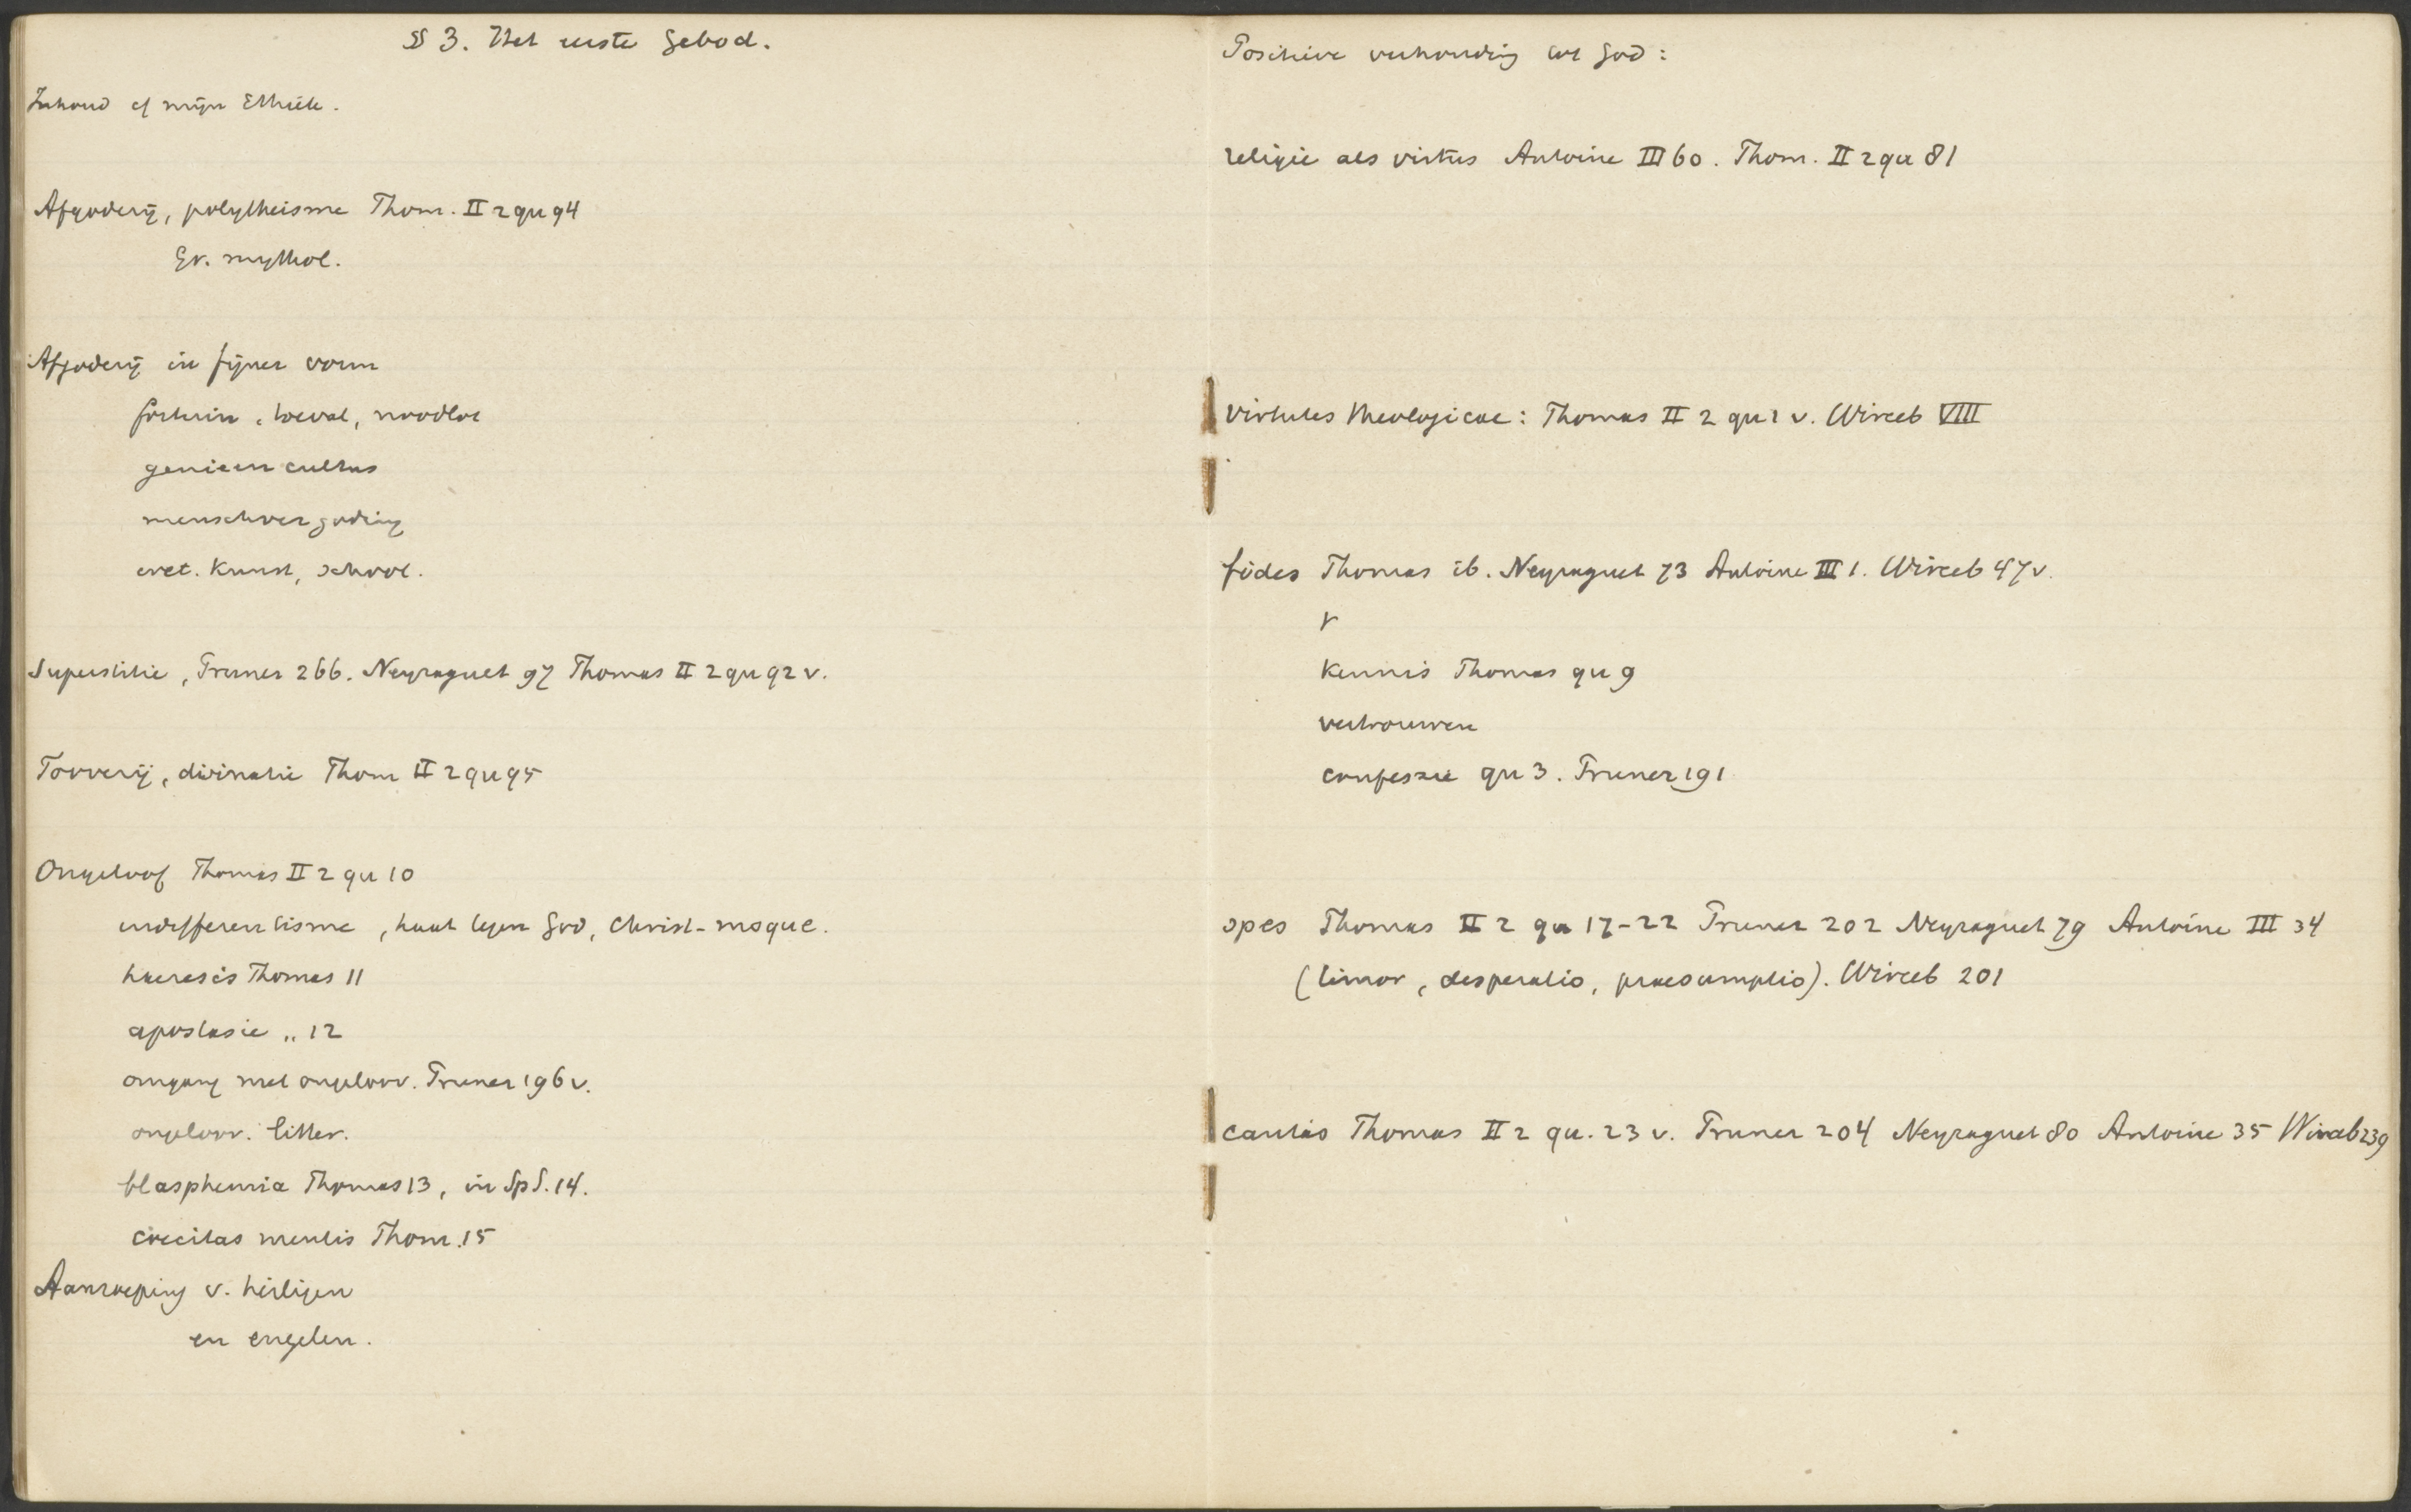 § 3. Het eerste Gebod.
Inhoud cf mijn Ethiek.
Afgoderij, polytheisme Thom. II 2 qu 94
Gr. mythol.
Afgoderij in fijner vorm
fortuin, toeval, noodlot
genieen cultus
menschvergoding
wet. Kunst, school.
Superstitie, Pruner 266. Neyraguet 97 Thomas II 2 qu 92 v.
Tooverij, divinatie Thom II 2 qu 95
Ongeloof Thomas II 2 qu 10
indifferentisme, haat tegen God, Christ-
haeresis Thomas 11
apostasie „ 12
omgang met ongeloov. Pruner 196 v.
ongeloov. litter.
blasphemia Thomas 13, in Sp S. 14.
caecitas mentis Thom. 15
Aanroeping v. heiligen
en engelen.
Positieve verhouding tot God:
religie als virtus Antoine III 60. Thom. II 2 qu 81
Virtutes theologicae: Thomas II 2 qu 1 v. Wirceb VIII
fides Thomas ib. Neyraguet 73 Antoine III 1. Wirceb 47 v.
v
Kennis Thomas qu 9
vertrouwen
confessie qu 3. Pruner 191
spes Thomas II 2 qu 17-22 Pruner 202 Neyraguet 79 Antoine III 34
(timor, desperatio, praesumptio). Wirceb 201
caritas Thomas II 2 qu. 23 v. Pruner 204 Neyraguet 80 Antoine 35 Wirceb 239